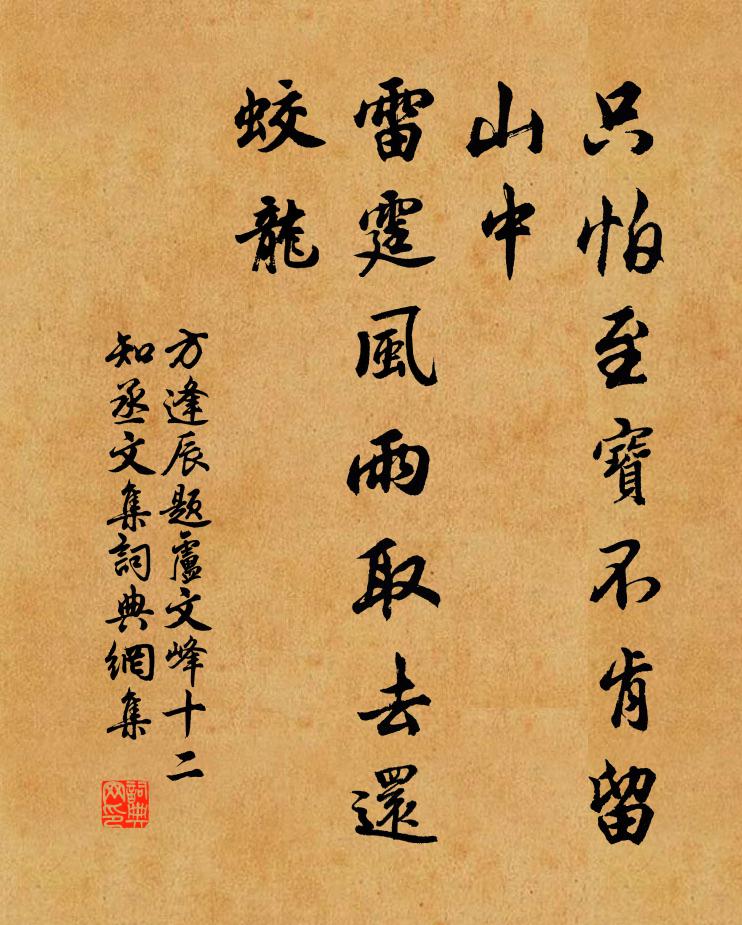 只怕至寶不肯留
山中
雷霆風雨取去還
蛟龍
方逢辰题盧文峰十二
知丞文集詞典網集
詞典网印